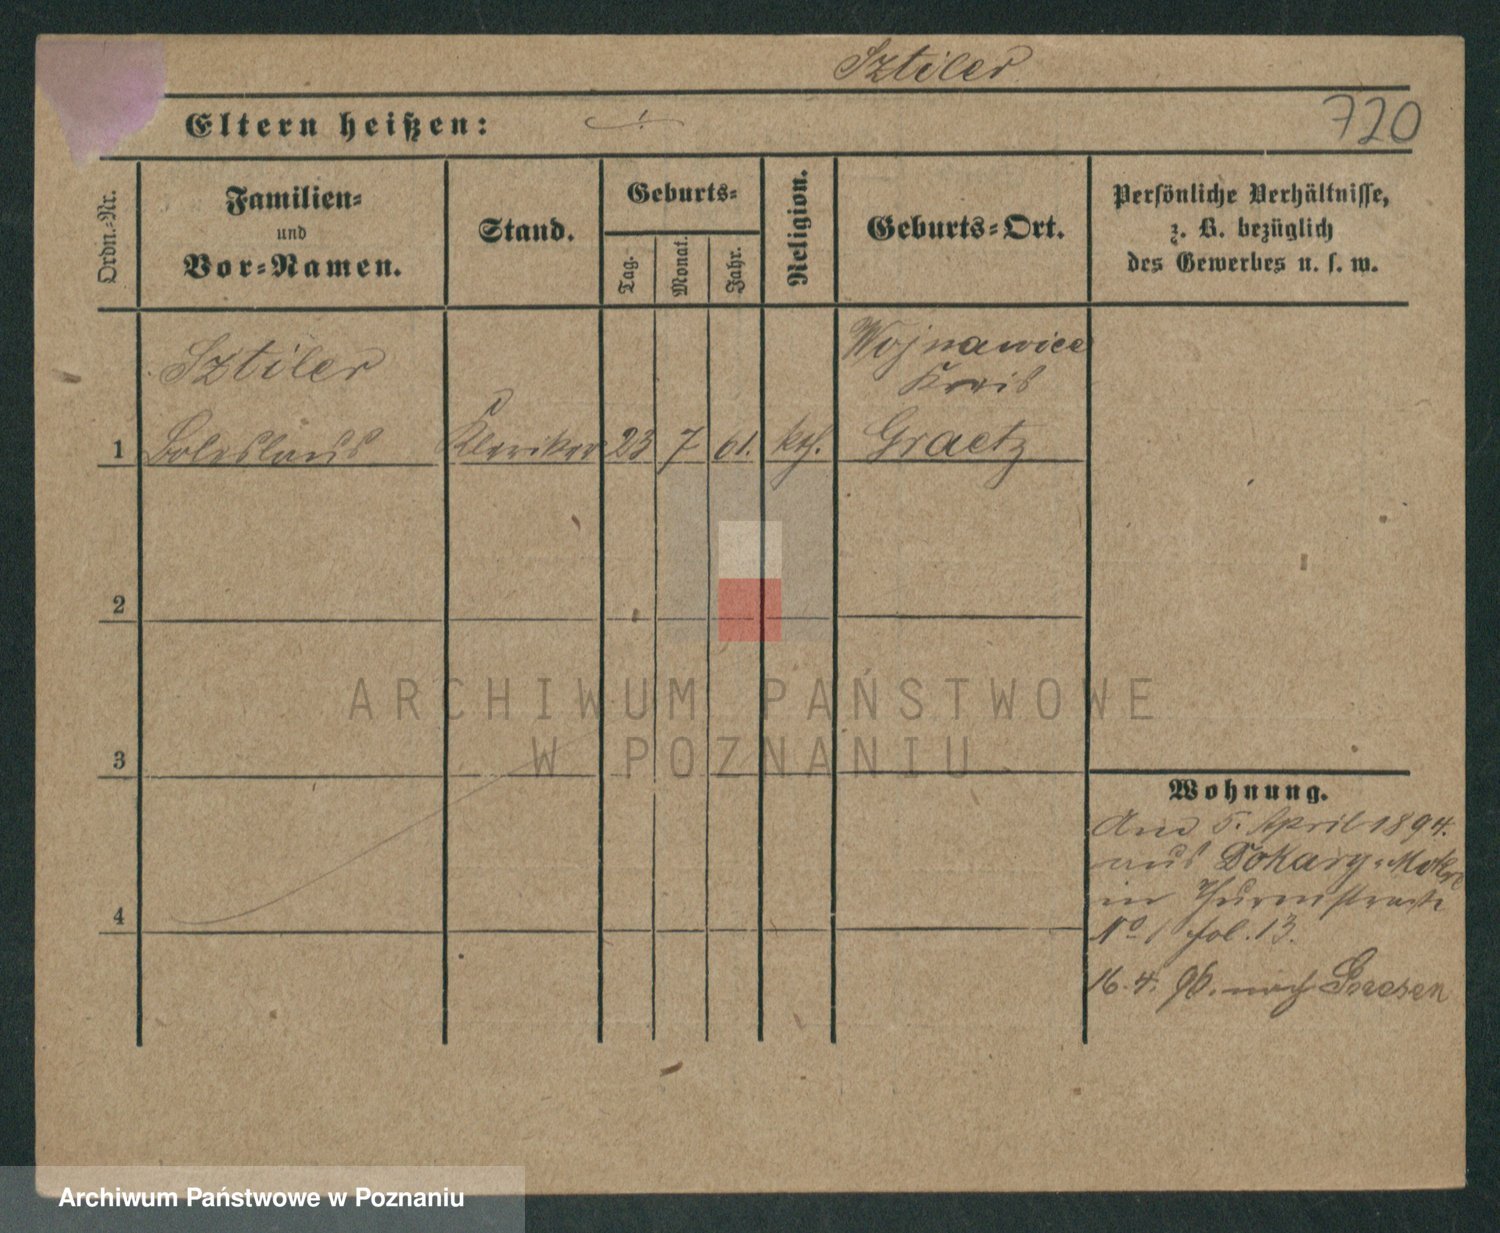 Sztiler
720
Eltern heißen:
Ordn.-Nr.
Familien-
und
Vor-Namen.
Stand.
Geburts-
Tag.
Monat.
Jahr.
Religion.
Geburts-Ort.
Persönliche Verhältnisse,
z. B. bezüglich
des Gewerbes u. s. w.
Sztiler
Wojnawice
Kreis
1 Boleslaus Kleriker 23 7 61. kth. Graetz
2
3
4
Wohnung.
Am 5. April 1894.
aus Tokary
in Thurmstraße
No 1 fol. 13.
16.4. 96. nach Gnesen
ARCHIWUM PAŃSTWOWE
W POZNANIU
Archiwum Państwowe w Poznaniu